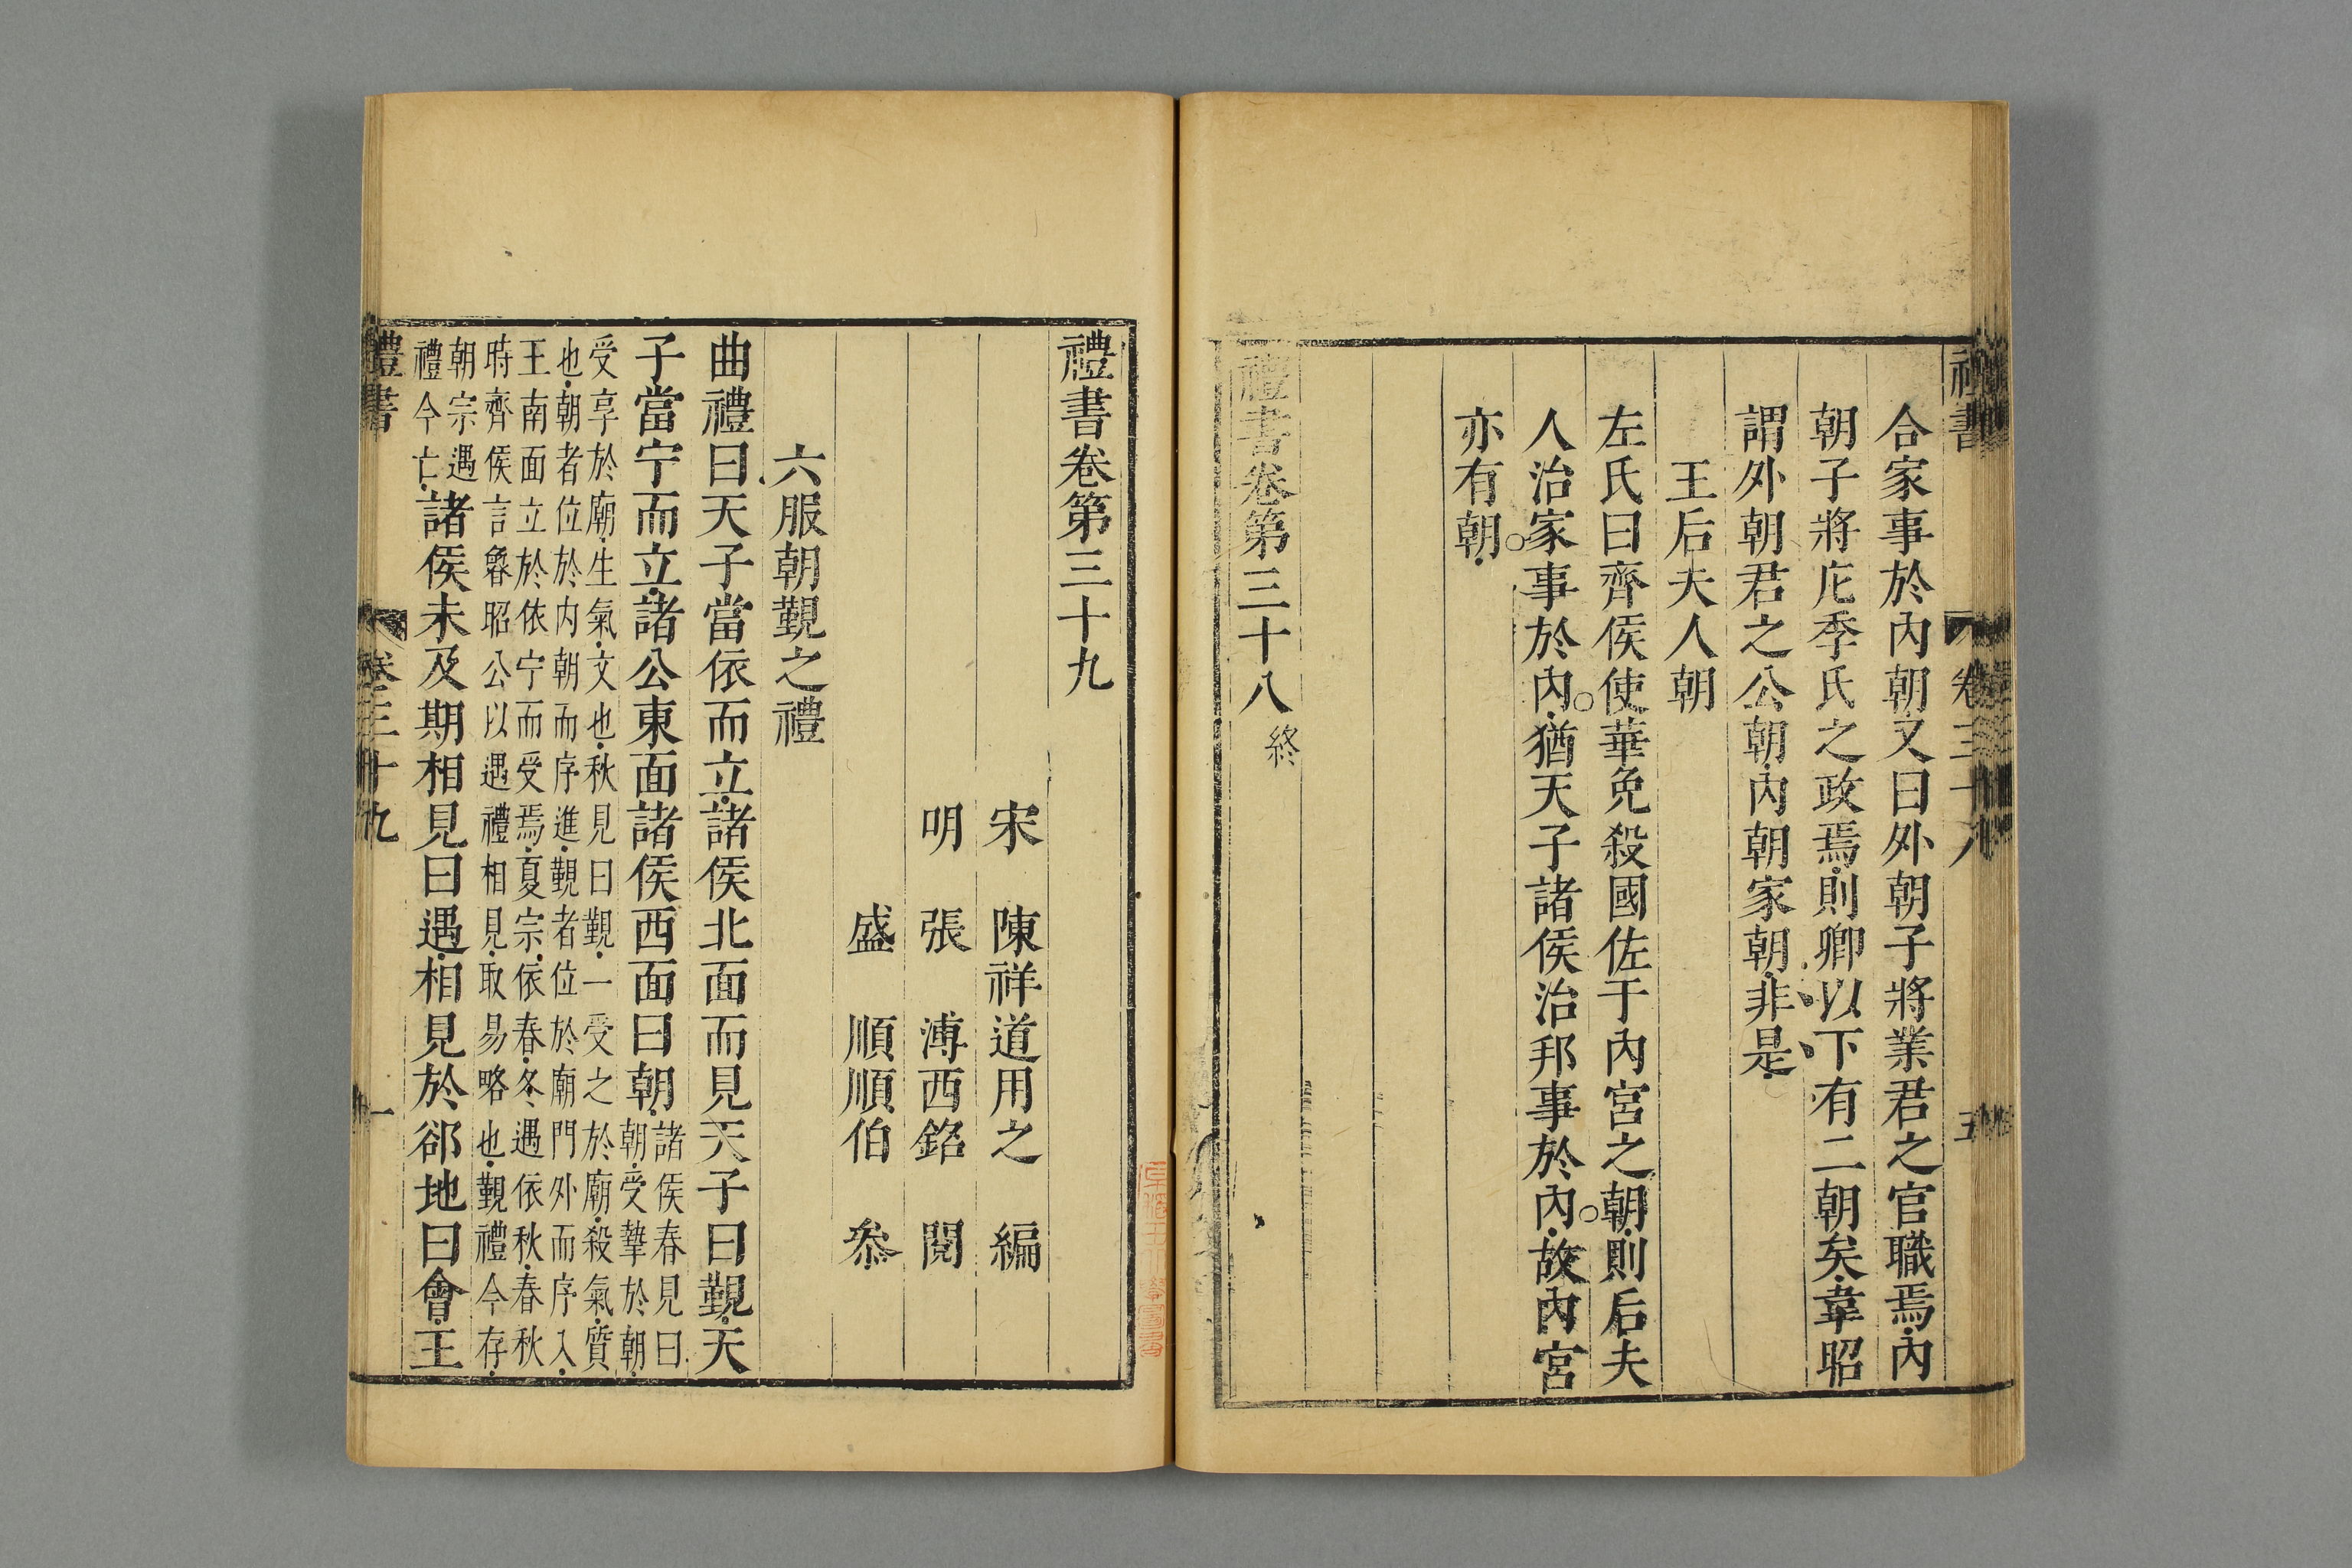 禮書
卷三十八
五
合家事於內朝又曰外朝子將業君之官職焉內
朝子將庀季氏之政焉則卿以下有二朝矣韋昭
謂外朝君之公朝內朝家朝非是
王后夫人朝
左氏曰齊侯使華免殺國佐于內宮之朝則后夫
人治家事於內猶天子諸侯治邦事於內故內宮
亦有朝
禮書卷第三十八終
禮書卷第三十九
宋 陳祥道用之 編
明 張 溥西銘 閱
盛 順順伯 叅
六服朝覲之禮
曲禮曰天子當依而立諸侯北面而見天子曰覲天
子當宁而立諸公東面諸侯西面曰朝
諸侯春見曰
朝受摯於朝
受享於廟生氣文也秋見曰覲一受之於廟殺氣質
也朝者位於內朝而序進覲者位於廟門外而序入
王南面立於依宁而受焉夏宗依春冬遇依秋春秋
時齊侯言魯昭公以遇禮相見取易略也覲禮今存
朝宗遇
禮今亡
諸侯未及期相見曰遇相見於郤地曰會王
禮書
卷三十九
一